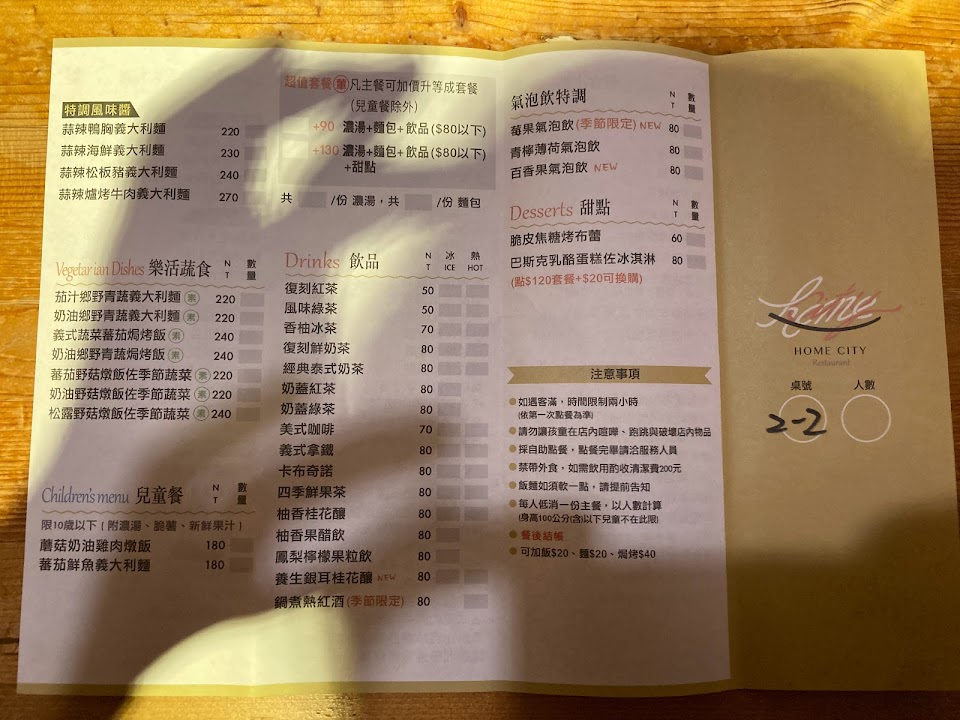 特調風味醬
蒜辣鴨胸義大利麵 220
蒜辣海鮮義大利麵 230
蒜辣松板豬義大利麵 240
蒜辣爐烤牛肉義大利麵 270
Vegetarian Dishes 樂活蔬食 NT 數量
茄汁鄉野青蔬義大利麵 素 220
奶油鄉野青蔬義大利麵 素 220
義式蔬菜蕃茄焗烤飯 素 240
奶油鄉野青蔬焗烤飯 素 240
蕃茄野菇燉飯佐季節蔬菜 素 220
奶油野菇燉飯佐季節蔬菜 素 220
松露野菇燉飯佐季節蔬菜 素 240
Children's menu 兒童餐 NT 數量
限10歲以下 ( 附濃湯、脆薯、新鮮果汁 )
蘑菇奶油雞肉燉飯 180
蕃茄鮮魚義大利麵 180
超值套餐 凡主餐可加價升等成套餐
(兒童餐除外)
+90 濃湯+麵包+飲品($80以下)
+130 濃湯+麵包+飲品($80以下)
+甜點
共 /份 濃湯，共 /份 麵包
Drinks 飲品 NT 冰 ICE 熱 HOT
復刻紅茶 50
風味綠茶 50
香柚冰茶 70
復刻鮮奶茶 80
經典泰式奶茶 80
奶蓋紅茶 80
奶蓋綠茶 80
美式咖啡 70
義式拿鐵 80
卡布奇諾 80
四季鮮果茶 80
柚香桂花釀 80
柚香果醋飲 80
鳳梨檸檬果粒飲 80
養生銀耳桂花釀 NEW 80
鍋煮熱紅酒(季節限定) 80
氣泡飲特調 NT 數量
莓果氣泡飲(季節限定) NEW 80
青檸薄荷氣泡飲 80
百香果氣泡飲 NEW 80
Desserts 甜點 NT 數量
脆皮焦糖烤布蕾 60
巴斯克乳酪蛋糕佐冰淇淋 80
(點$120套餐+$20可換購)
注意事項
如遇客滿，時間限制兩小時
(依第一次點餐為準)
請勿讓孩童在店內喧嘩、跑跳與破壞店內物品
採自助點餐，點餐完畢請洽服務人員
禁帶外食，如需飲用酌收清潔費200元
飯麵如須軟一點，請提前告知
每人低消一份主餐，以人數計算
(身高100公分(含)以下兒童不在此限)
餐後結帳
可加飯$20、麵$20、焗烤$40
home
HOME CITY
Restaurant
桌號 人數
2-2